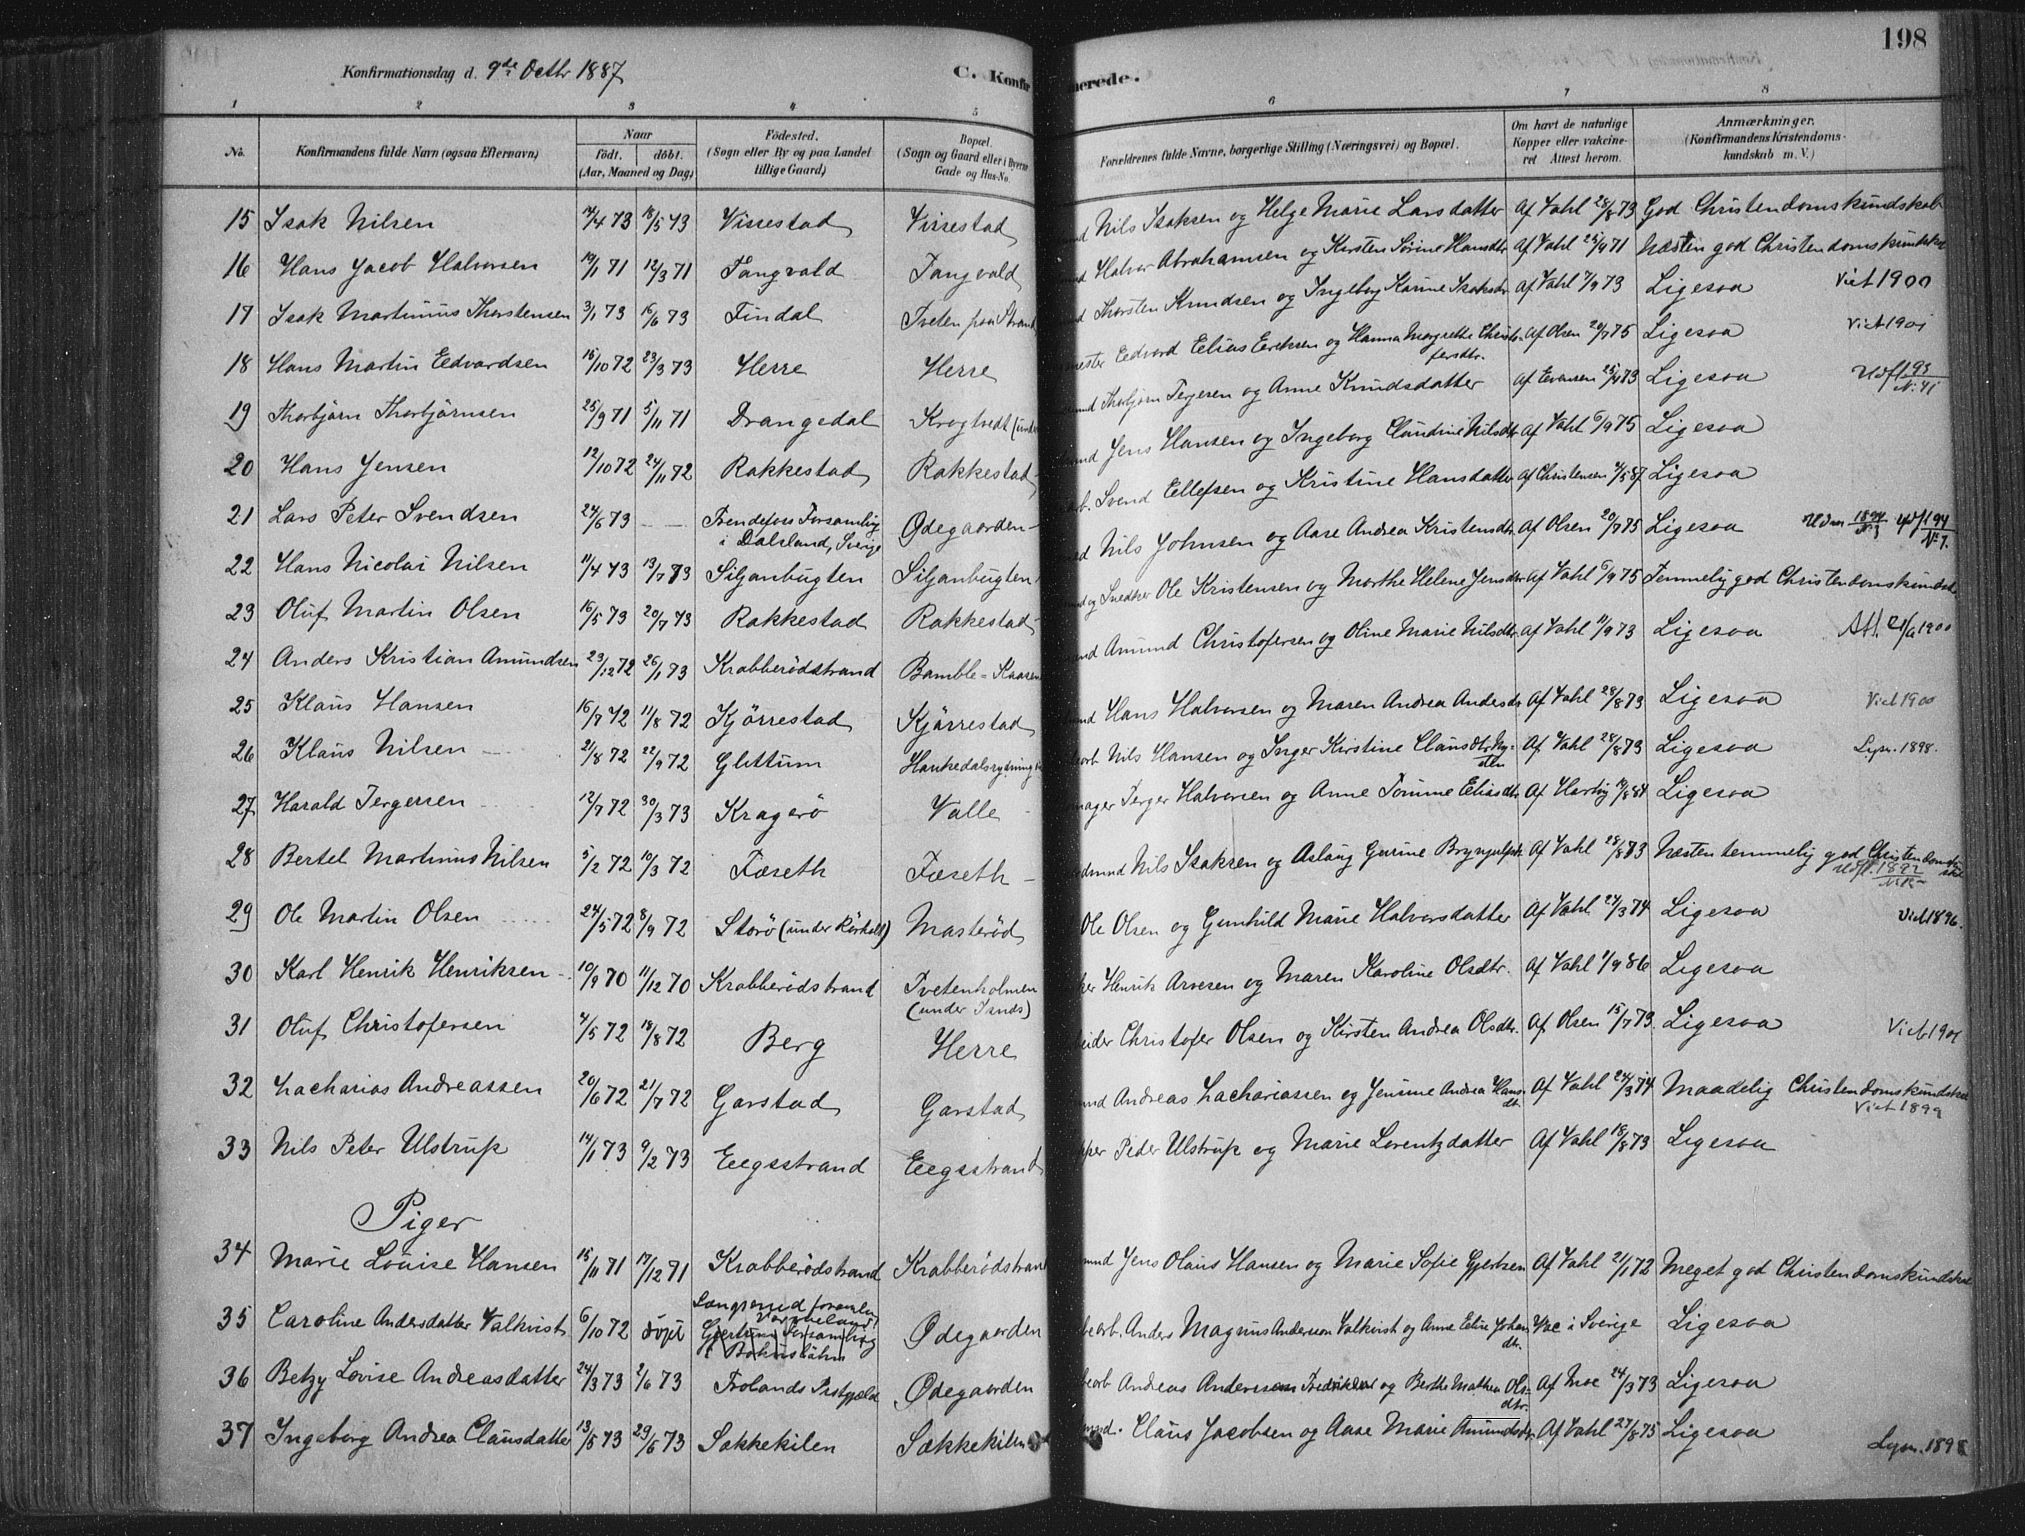 198
Konfirmationsdag d. 9de Octbr 1887
C. Konfirmerede.
1 2 3 4 5 6 7 8
No. Konfirmandens fulde Navn (ogsaa Efternavn) Naar födt. döbt. (Aar, Maaned og Dag) Födested. (Sogn eller By og paa Landet tillige Gaard) Bopæl. (Sogn og Gaard eller i Byerne Gade og Hus-No. Forældrenes fulde Navne, borgerlige Stilling (Næringsvei) og Bopæl. Om havt de naturlige Kopper eller vakcineret Attest herom. Anmærkninger. (Konfirmandens Kristendomskundskab m. V.)
15 Isak Nilsen 18/5 73 Vissestad Vissestad Nils Isaksen og Helge Marie Larsdatter Af Vahl 28/8 73 God Christendomskundskab
16 Hans Jacob Halvorsen 19/1 71 12/3 71 Tangvald Tangvald Halvor Abrahamsen og Kirsten Sørine Hansdtr Af Vahl 71 Næsten god Christendomskundskab
17 Isak Martinius Thorstensen 3/1 73 16/6 73 Findal Tveten paa Strand Thorsten Knudsen og Ingeborg Karine Isaksdr Af Vahl 7/9 73 Ligesaa Viet 1900
18 Hans Martin Eedvardsen 15/10 72 23/3 73 Herre Herre Eedvard Elias Eriksen og Hanna Margrethe Christofersdtr. Af Olsen 20/7 75 Ligesaa Viet 1901
19 Thorbjørn Thorbjørnsen 25/9 71 5/11 71 Drangedal Krogtvedt (under Thorbjørn Terjesen og Anne Knudsdatter Af Evensen 73 Ligesaa Udfl. 93 N. 41
20 Hans Jensen 12/10 72 24/11 72 Rakkestad Rakkestad Jens Hansen og Ingeborg Claudine Nilsdtr Af Vahl 6/9 75 Ligesaa
21 Lars Peter Svendsen 24/6 73 — — Frendefors Forsamling i Dalsland, Sverige Ødegaarden Svend Ellefsen og Kristine Hansdatter Af Christensen 87 Ligesaa
22 Hans Nicolai Nilsen 11/4 73 13/7 73 Siljanbugten Siljanbugten Nils Johnsen og Aase Andrea Kristensdtr Af Olsen 20/7 75 Ligesaa 1894
23 Oluf Martin Olsen 16/5 73 20/7 73 Rakkestad Rakkestad og Snedker Ole Kristensen og Marthe Helene Jensdtr Af Vahl 6/9 75 Temmelig god Christendomskundsk.
24 Anders Kristian Amundsen 23/12 72 26/1 73 Krabberødstrand Bamble-Kaasen Amund Christofersen og Oline Marie Nilsdtr Af Vahl 11/9 73 Ligesaa Att. 1900
25 Klaus Hansen 16/7 72 11/8 72 Kjørrestad Kjørrestad Hans Halvorsen og Maren Andrea Andersdr Af Vahl 28/8 73 Ligesaa Viet 1900
26 Klaus Nilsen 21/8 72 22/9 72 Glittum Hankedalsrydning Nils Hansen og Inger Kirstine Clausdtr Af Vahl 28/8 73 Ligesaa Lysn. 1898.
27 Harald Tergersen 12/7 72 30/3 73 Kragerö Valle Terger Halvorsen og Anne Tomine Eliasdtr Af Hartvig 84 Ligesaa
28 Bertel Martinus Nilsen 5/2 72 10/3 72 Fæseth Fæseth Nils Isaksen og Aslaug Gurine Brynjulfsdr Af Vahl 28/8 73 Næsten temmelig god Christendomskundsk Udfl. 1892
29 Ole Martin Olsen 24/5 72 8/9 72 Storö (under Rörholt) Masteröd Ole Olsen og Gunhild Marie Halvorsdatter Af Vahl 24/3 74 Ligesaa Viet 1896.
30 Karl Henrik Henriksen 10/9 70 11/12 70 Krabberødstrand Tvetenholmen (under Tands) Henrik Arvesen og Maren Karoline Olsdtr. Af Vahl 1/9 86 Ligesaa
31 Oluf Christofersen 4/5 72 18/8 72 Berg Herre Christofer Olsen og Kirsten Andrea Olsdtr. Af Olsen 15/7 73 Ligesaa Viet 1901
32 Zacharias Andreassen 20/6 72 21/7 72 Garstad Garstad Andreas Zachariassen og Jensine Andrea Hansdt. Af Vahl 24/3 74 Maadelig Christendomskundskab Viet 1899
33 Nils Peter Ulstrup 14/1 73 9/2 73 Eegsstrand Eegsstrand Peder Ulstrup og Marie Lorentzdatter Af Vahl 18/8 73 Ligesaa
Piger
34 Marie Louise Hansen 15/11 71 17/12 71 Krabberødstrand Krabberødstrand Jens Olaus Hansen og Marie Sofie Gjertsen Af Vahl 21/1 72 Meget god Christendomskundskab
35 Caroline Andersdatter Valkvist 6/10 72 döpt Ødegaarden Anders Magnus Anderson Valkvist og Anne Elise Johandtr. Vac i Sverige Ligesaa
36 Betzy Lovise Andreasdatter 24/3 73 2/6 73 Frolands Prstgjæld Ødegaarden Andreas Anderssen Fredriksen og Berthe Mathea Olsdtr. Af Moe 24/3 73 Ligesaa
37 Ingeborg Andrea Clausdatter 13/5 73 29/6 73 Sækkekilen Sækkekilen Claus Jacobsen og Aase Marie Amundsdr Af Vahl 27/8 75 Ligesaa Lysn. 1898